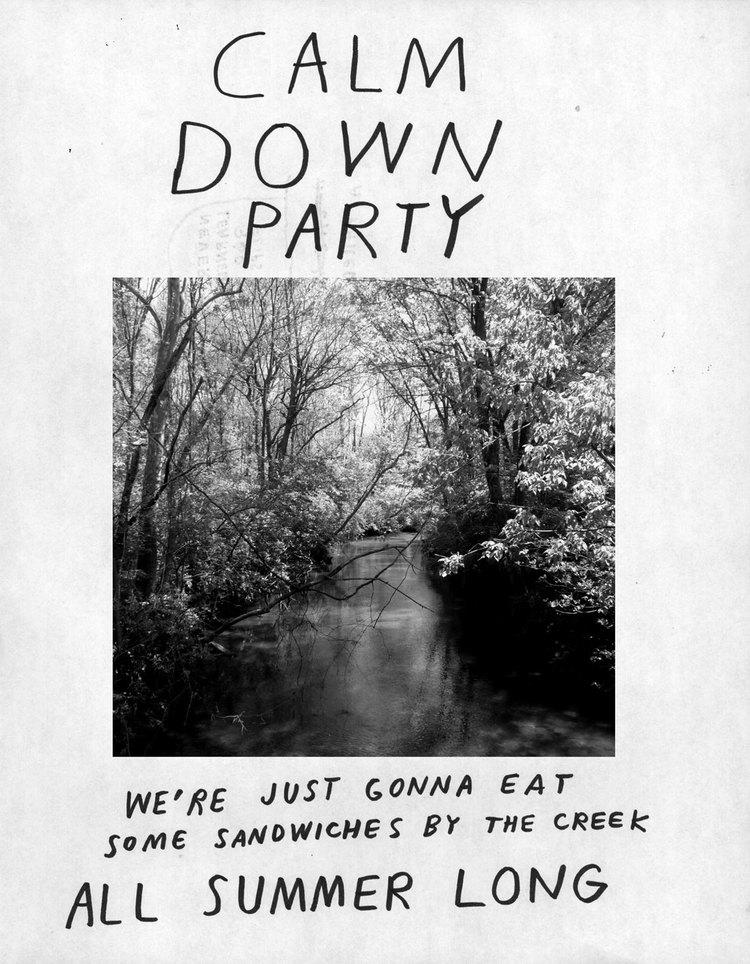 CALM
DOWN
PARTY
WE'RE JUST GONNA EAT
SOME SANDWICHES BY THE CREEK
ALL SUMMER LONG